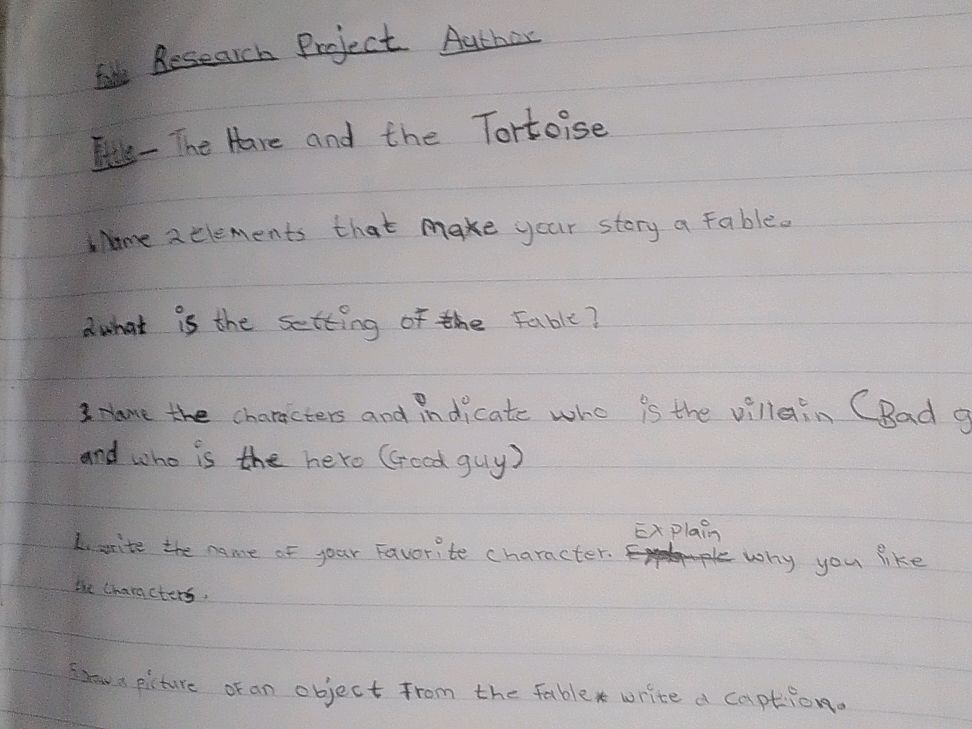 Research Project Author
Title - The Hare and the Tortoise
1. Name 2 elements that make your story a Fable.
2 what is the setting of the Fable?
3. Name the characters and indicate who is the villain (Bad g
and who is the hero (Good guy)
write the name of your Favorite character. Explain why you like
the characters.
5 Draw a picture of an object From the fable write a caption.